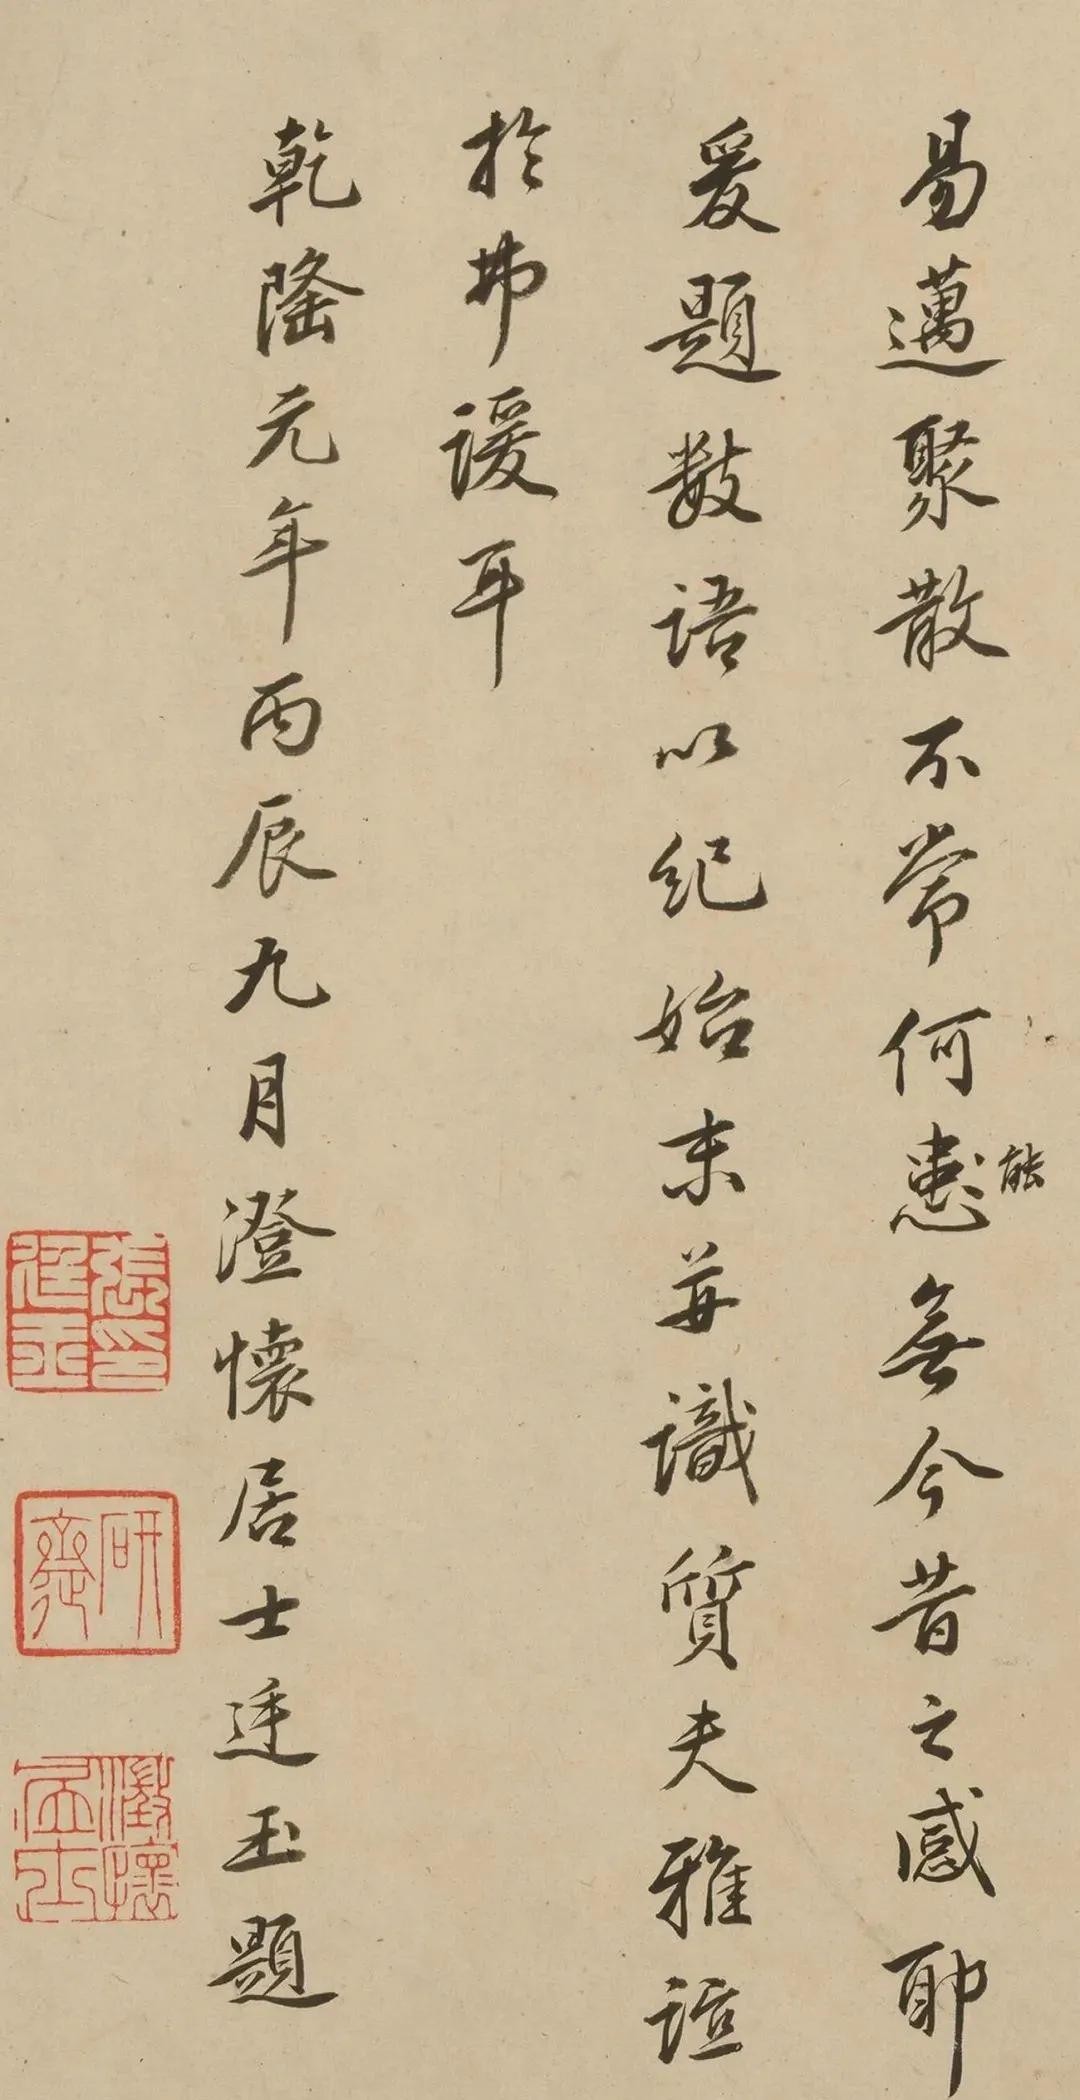 易邁聚散不常何患無今昔之感耶
能
爰題數語以紀始末並識質夫雅誼
於弗諼耳
乾隆元年丙辰九月澄懷居士廷玉題
張印廷玉
研齋
澂懷居士